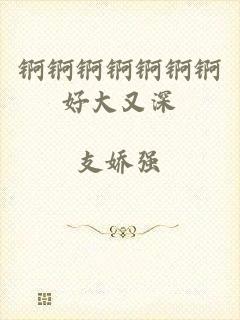 锕锕锕锕锕锕锕
好大又深
支娇强